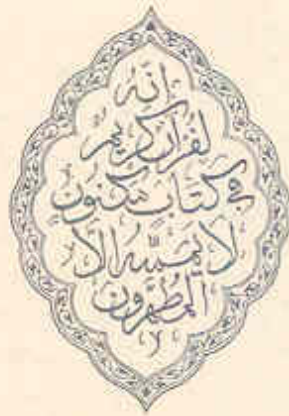 إِنَّهُ
لَقُرْآنٌ كَرِيمٌ
فِي كِتَابٍ مَكْنُونٍ
لَا يَمَسُّهُ إِلَّا
الْمُطَهَّرُونَ